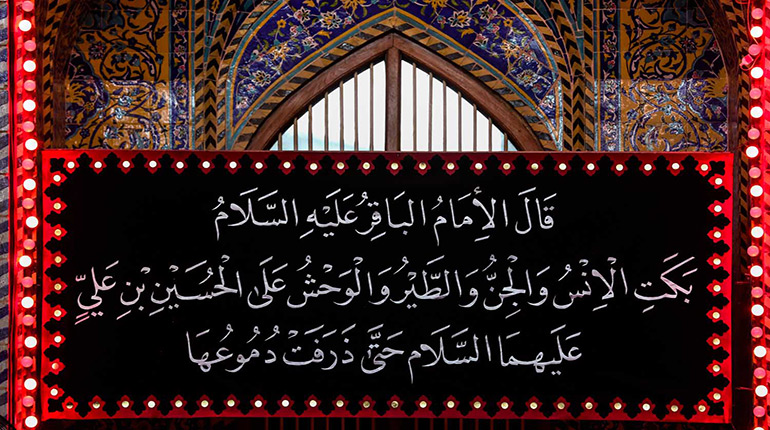 قَالَ الْإِمَامُ الْبَاقِرُ عَلَيْهِ السَّلَامُ
بَكَتِ الْإِنْسُ وَالْجِنُّ وَالطَّيْرُ وَالْوَحْشُ عَلَى الْحُسَيْنِ بْنِ عَلِيٍّ
عَلَيْهِمَا السَّلَام حَتَّى ذَرَفَتْ دُمُوعُهَا